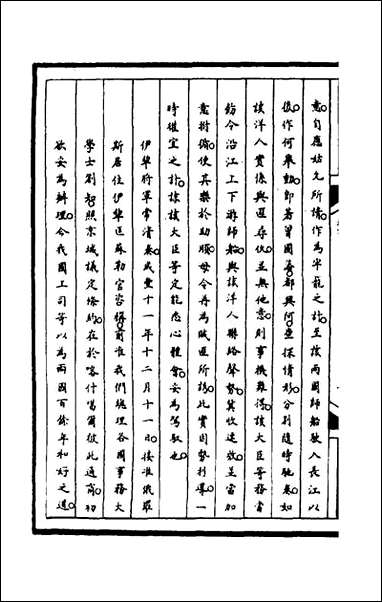 意自應姑允所請作為羈縻之計至該兩國師船駛入長江以
後作何舉動即著曾國藩都興阿密探情形分別隨時馳奏如
該洋人實係與遜尋仇並無他意則事機難得該大臣等務當
飭令沿江上下游師船與該洋人聯絡聲勢冀收速效並當加
意拊循使其樂於助順毋令再為賊匪所誘此實因勢利導一
時權宜之計諒該大臣等定能悉心體會妥為駕馭也
伊犂將軍常清奏咸豐十一年十二月十一日接准俄羅
斯居住伊犂匡蘇勒官咨稱前准我們總理各國事務大
學士劉智照京城議定條約在於喀什噶爾彼此通商初
欲妥為辦理今我國上司等以為兩國百餘年和好之道